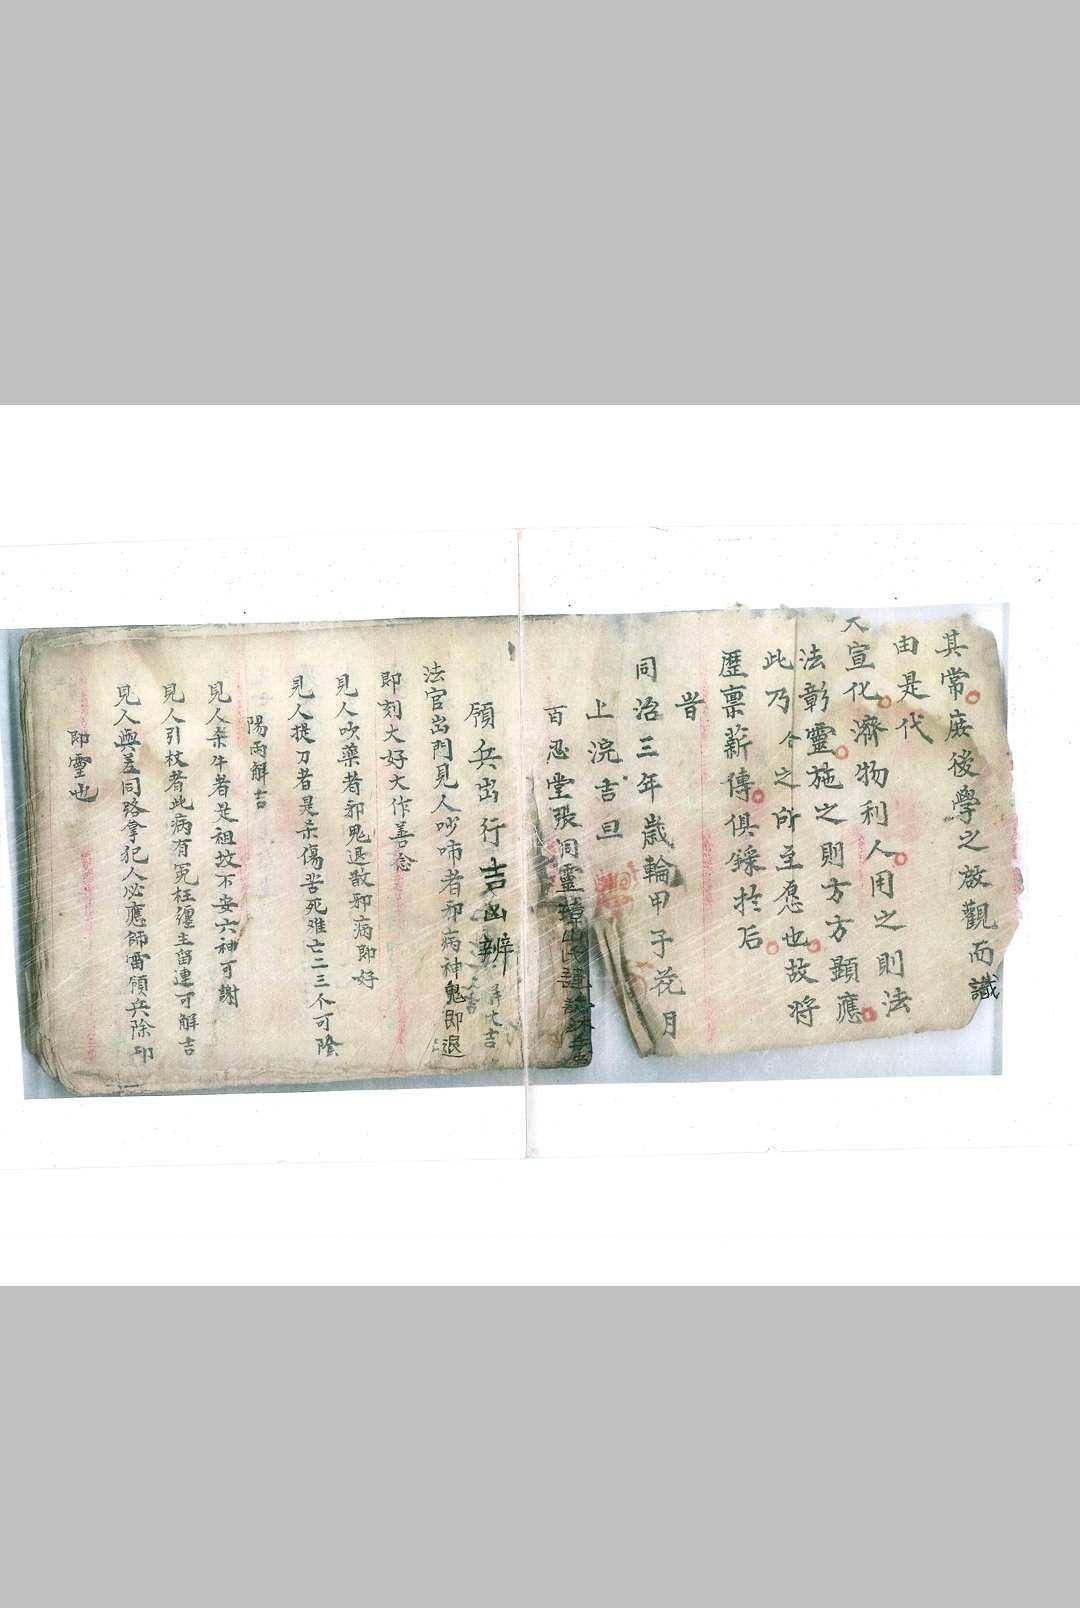 其常庶後學之啟觀而識
由是代
天宣化濟物利人用之則法
法彰靈施之則方方顯應
此乃今之所至意也故將
歷稟薪傳俱錄於后
旹
同治三年歲輪甲子花月
上浣吉旦
百忍堂張洞靈
領兵出行吉凶辨
法官出門見人吵啼者邪病神鬼即退
即刻大好大作善念
見人吹藥者邪鬼退散邪病即好
見人提刀者是杀傷苦死难亡二三个可陰
陽兩解吉
見人牵牛者是祖坟不安六神可謝
見人引杖者此病有冤枉纏主留連可解吉
見人與差同路拿犯人必應師雷領兵除邪
即靈也